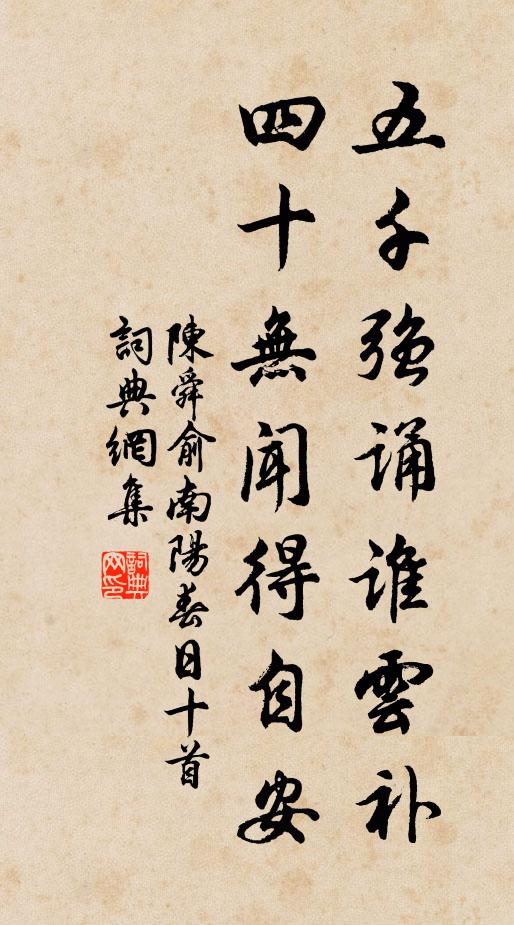 五千强誦誰雲补
四十無闻得自安
陳舜俞南陽春日十首
詞典網集
詞典网印